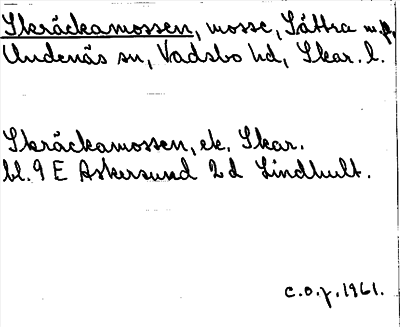 Skräckamossen, mosse, Sättra m.fl.
Undenäs sn, Vadsbo hd, Skar. l.
Skräckamossen, ek. Skar.
bl. 9 E Askersund 2d Lindhult.
c.o.j. 1961.